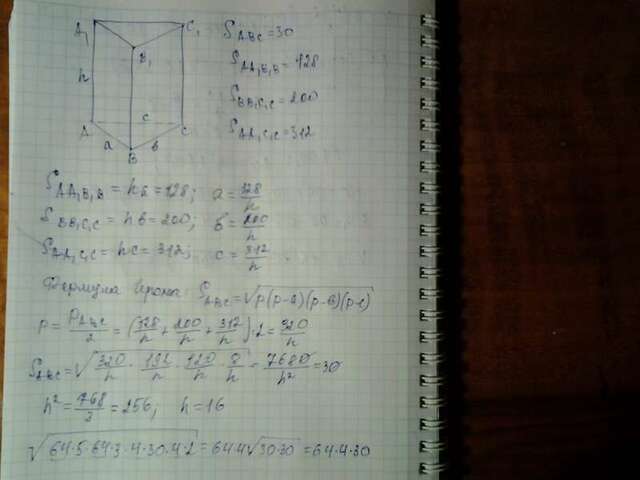 A₁ C₁
B₁
h
A c C
a b
B
S_ABC = 30
S_AA₁B₁B = 128
S_BB₁C₁C = 200
S_AA₁C₁C = 312
S_AA₁B₁B = ha = 128; a = 128/h
S_BB₁C₁C = hв = 200; в = 200/h
S_AA₁C₁C = hc = 312; c = 312/h
Формула Герона: S_ABC = √p(p-a)(p-в)(p-c)
p = P_ABC/2 = (128/h + 200/h + 312/h):2 = 320/h
S_ABC = √320/h · 192/h · 120/h · 8/h = 7680/h² = 30
h² = 768/3 = 256; h = 16
√64·5·64·3·4·30·4·2 = 64·4√30·30 = 64·4·30